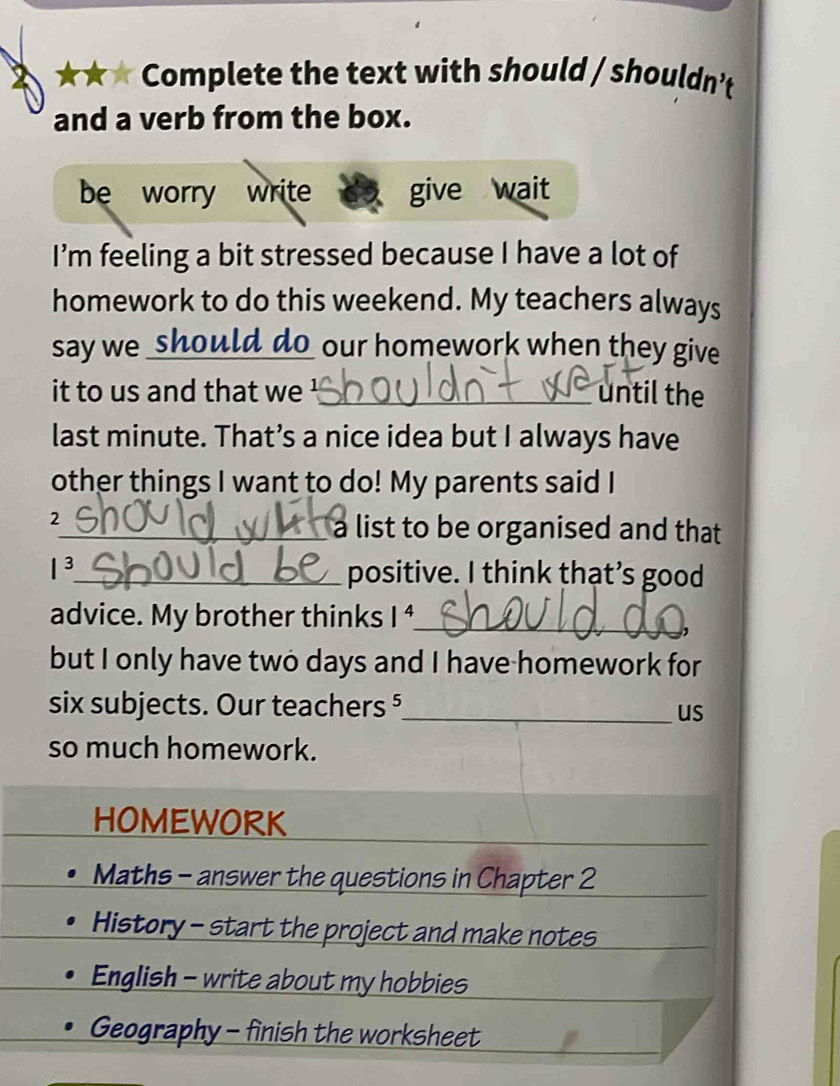 2 ★★★ Complete the text with should / shouldn't
and a verb from the box.
be worry write do give wait
I'm feeling a bit stressed because I have a lot of
homework to do this weekend. My teachers always
say we should do our homework when they give
it to us and that we ¹shouldn't wait until the
last minute. That's a nice idea but I always have
other things I want to do! My parents said I
² should write a list to be organised and that
I ³ should be positive. I think that's good
advice. My brother thinks I ⁴ should do,
but I only have two days and I have homework for
six subjects. Our teachers ⁵ us
so much homework.
HOMEWORK
• Maths – answer the questions in Chapter 2
• History – start the project and make notes
• English – write about my hobbies
• Geography – finish the worksheet